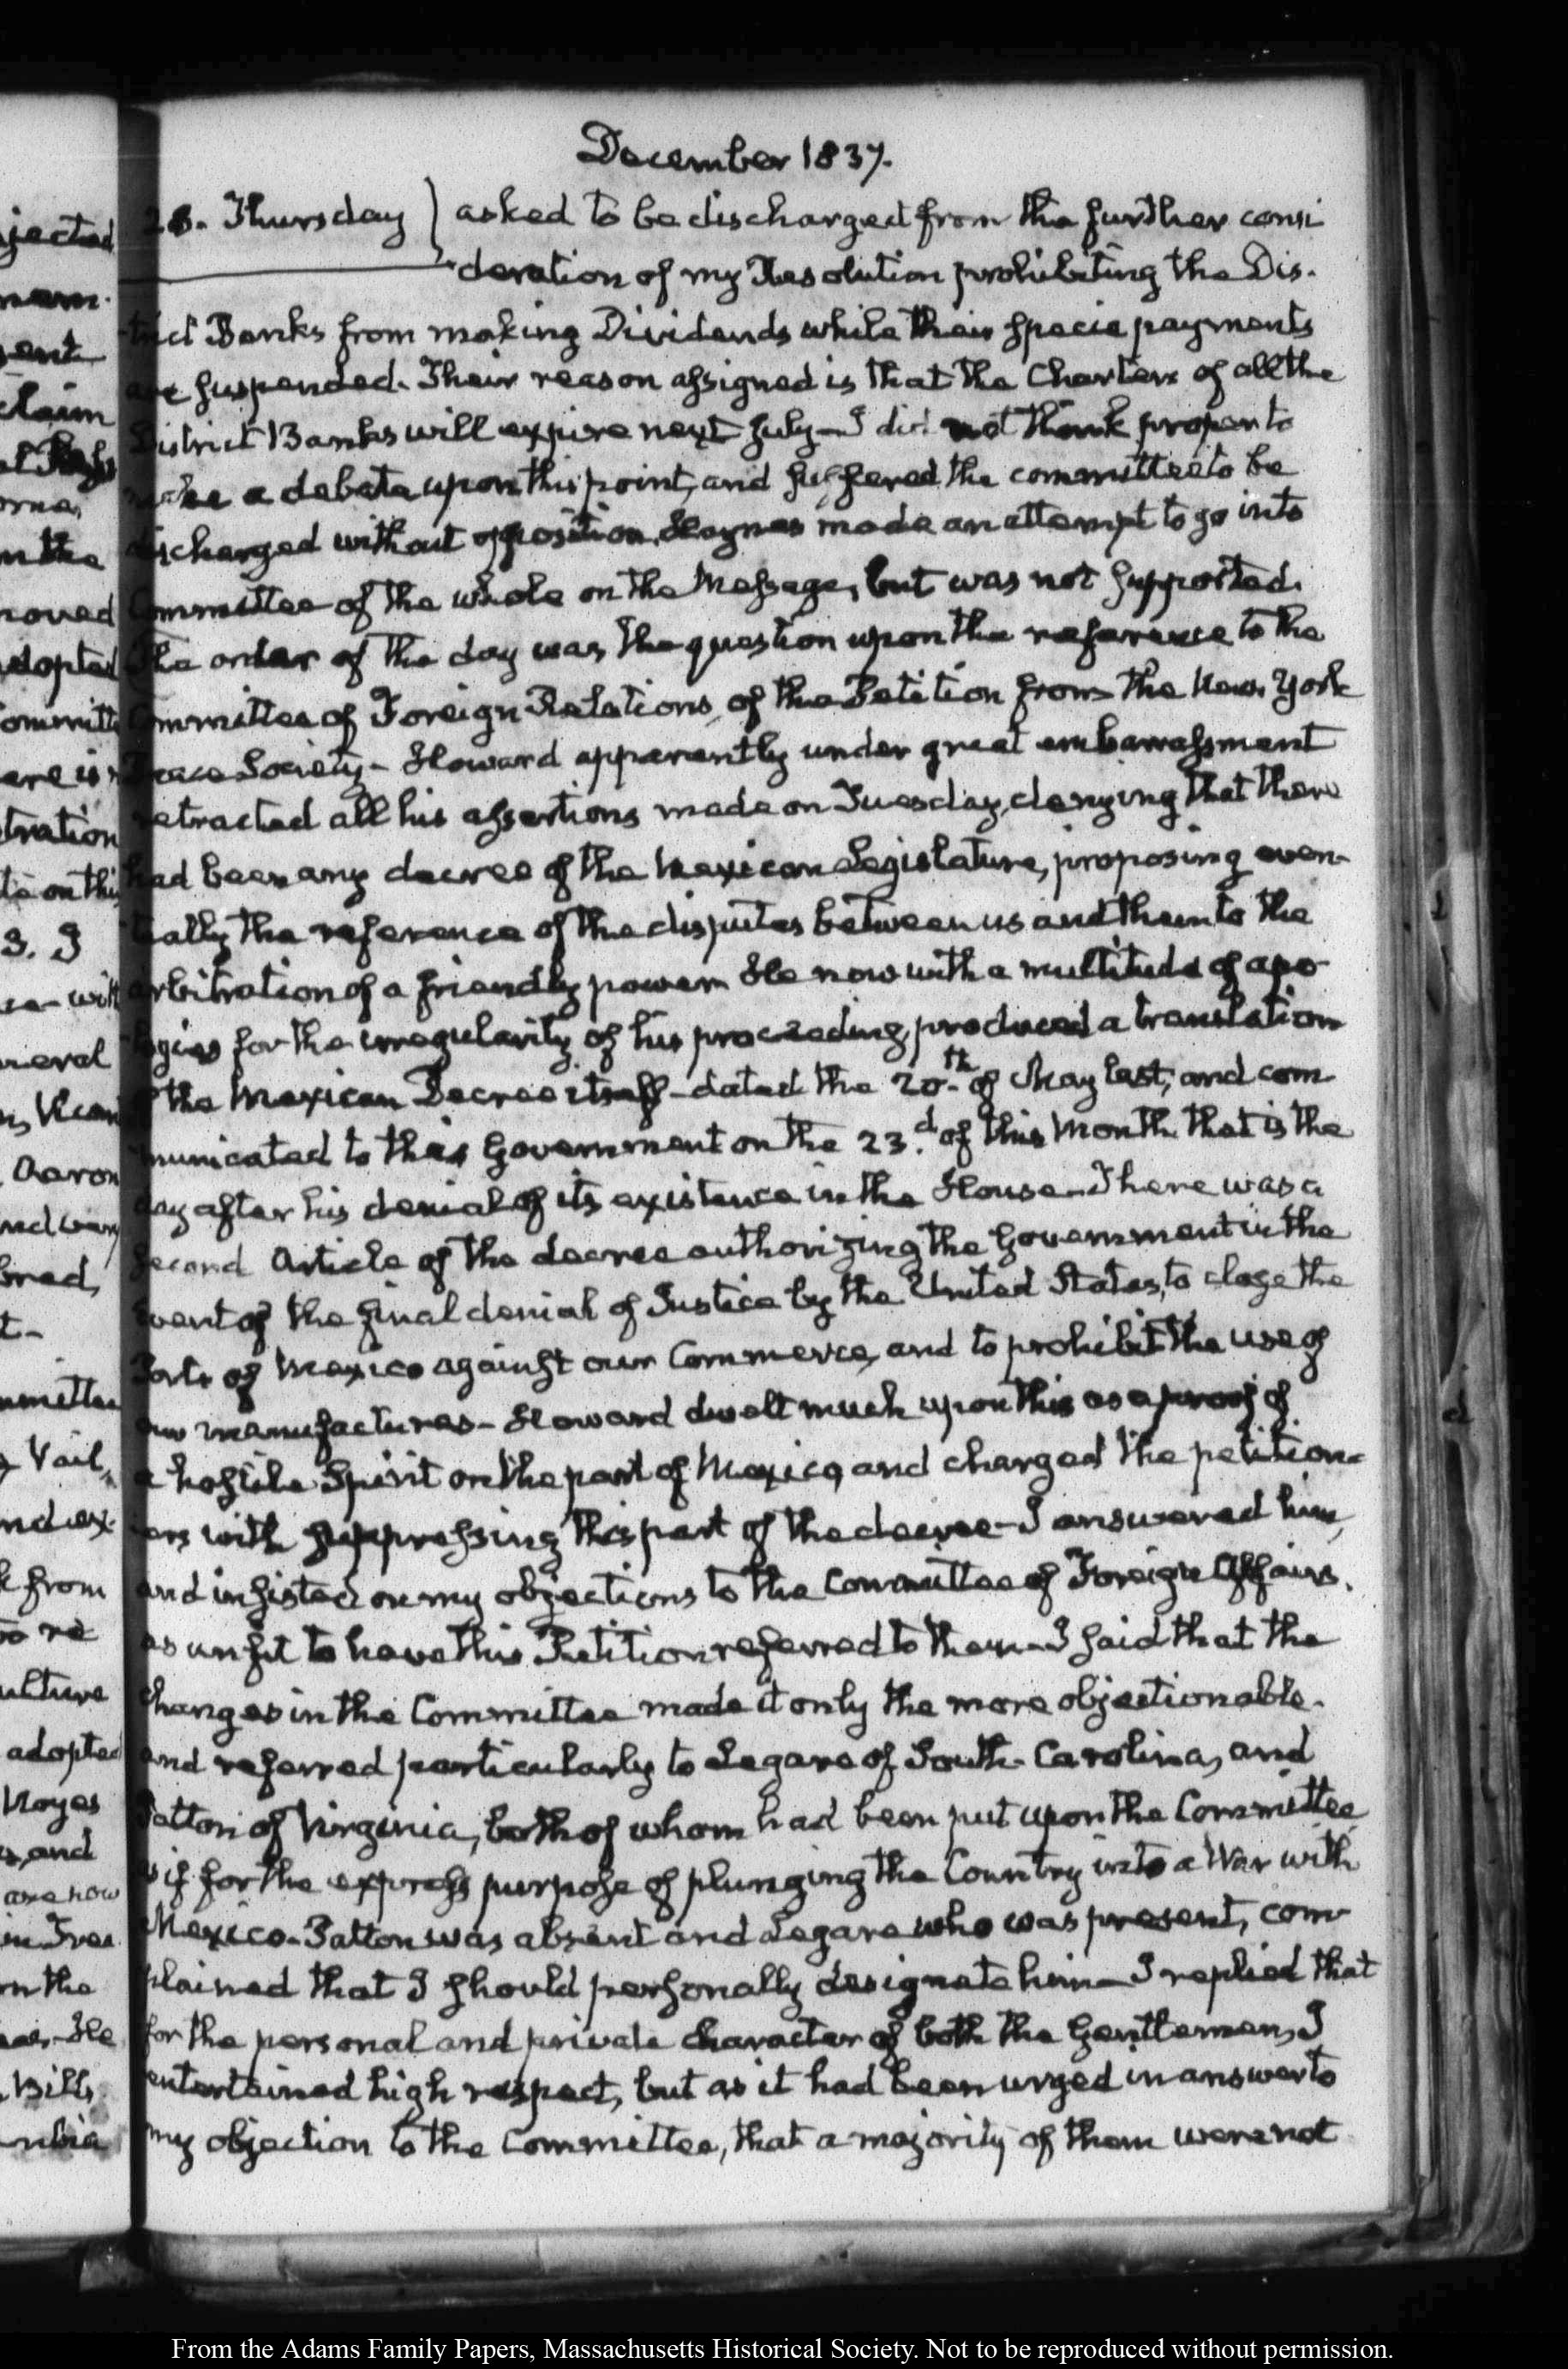 December 1837.
28. Thursday } asked to be discharged from the further consi
deration of my Resolution prohibiting the Dis-
trict Banks from making Dividends while their specie payments
are suspended. Their reason assigned is that the Charters of all the
District Banks will expire next July—I did not think proper to
make a debate upon this point, and suffered the committee to be
discharged without opposition. Haynes made an attempt to go into
Committee of the whole on the Message, but was not supported.
The order of the day was the question upon the reference to the
Committee of Foreign Relations, of the Petition from the New York
Peace Society—Howard apparently under great embarrassment
retracted all his assertions made on Tuesday, denying that there
had been any decree of the Mexican Legislature, proposing even-
tually the reference of the disputes between us and them to the
arbitration of a friendly power. He now with a multitude of apo-
logies for the irregularity of his proceeding, produced a translation
of the Mexican Decree itself—dated the 20th. of May last, and com-
municated to this Government on the 23.d of this Month. that is the
day after his denial of its existence in the House—There was a
second Article of the decree authorizing the Government in the
event of the final denial of Justice by the United States, to close the
Ports of Mexico against our Commerce, and to prohibit the use of
our manufactures—Howard dwelt much upon this as a proof of
a hostile Spirit on the part of Mexico, and charged the petition-
ers with suppressing this part of the decree—I answered him,
and insisted on my objections to the Committee of Foreign Affairs.
as unfit to have this Petition referred to them—I said that the
changes in the Committee made it only the more objectionable.
and referred particularly to Legare of South-Carolina, and
Patton of Virginia, both of whom had been put upon the Committee
as if for the express purpose of plunging the Country into a War with
Mexico. Patton was absent and Legare who was present, com-
plained that I should personally designate him—I replied that
for the personal and private character of both the Gentlemen, I
entertained high respect, but as it had been urged in answer to
my objection to the Committee, that a majority of them were not
From the Adams Family Papers, Massachusetts Historical Society. Not to be reproduced without permission.